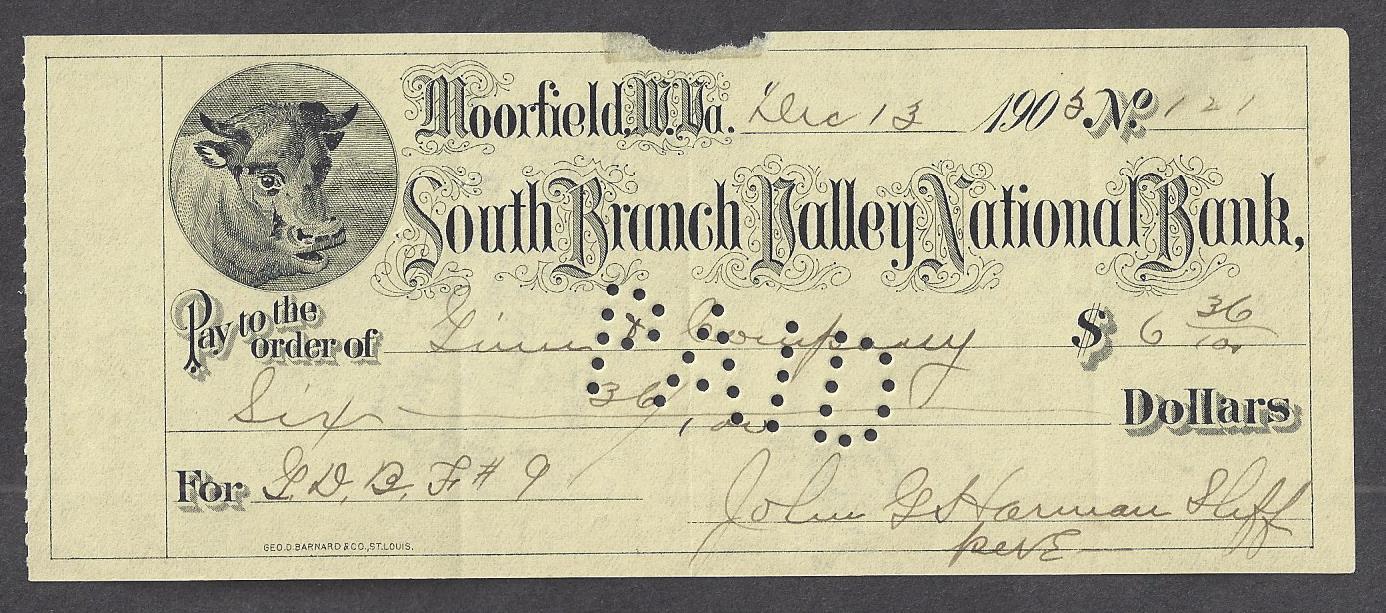 Moorfield, W. Va. Dec 13 1903 No. 121
South Branch Valley National Bank,
Pay to the order of & Company $ 6 36/100
Six 36/100 Dollars
For G. D. B. F. # 9
John G Harman Shff
GEO. D. BARNARD & CO., ST. LOUIS.
PAID